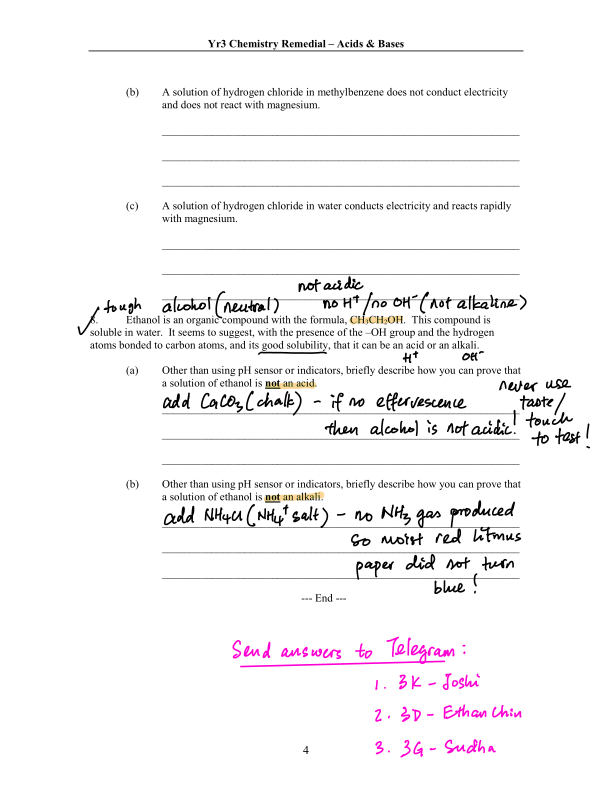 Yr3 Chemistry Remedial – Acids & Bases
(b) A solution of hydrogen chloride in methylbenzene does not conduct electricity
and does not react with magnesium.
(c) A solution of hydrogen chloride in water conducts electricity and reacts rapidly
with magnesium.
not acidic
tough alcohol (neutral) no H⁺/no OH⁻ (not alkaline)
Ethanol is an organic compound with the formula, CH₃CH₂OH. This compound is
soluble in water. It seems to suggest, with the presence of the –OH group and the hydrogen
atoms bonded to carbon atoms, and its good solubility, that it can be an acid or an alkali.
H⁺ OH⁻
(a) Other than using pH sensor or indicators, briefly describe how you can prove that
a solution of ethanol is not an acid.
never use
taste/
touch
to test!
add CaCO₃ (chalk) – if no effervescence
then alcohol is not acidic!
(b) Other than using pH sensor or indicators, briefly describe how you can prove that
a solution of ethanol is not an alkali.
add NH₄Cl (NH₄⁺ salt) – no NH₃ gas produced
so moist red litmus
paper did not turn
blue!
--- End ---
Send answers to Telegram:
1. 3K – Joshi
2. 3D – Ethan Chin
3. 3G – Sudha
4